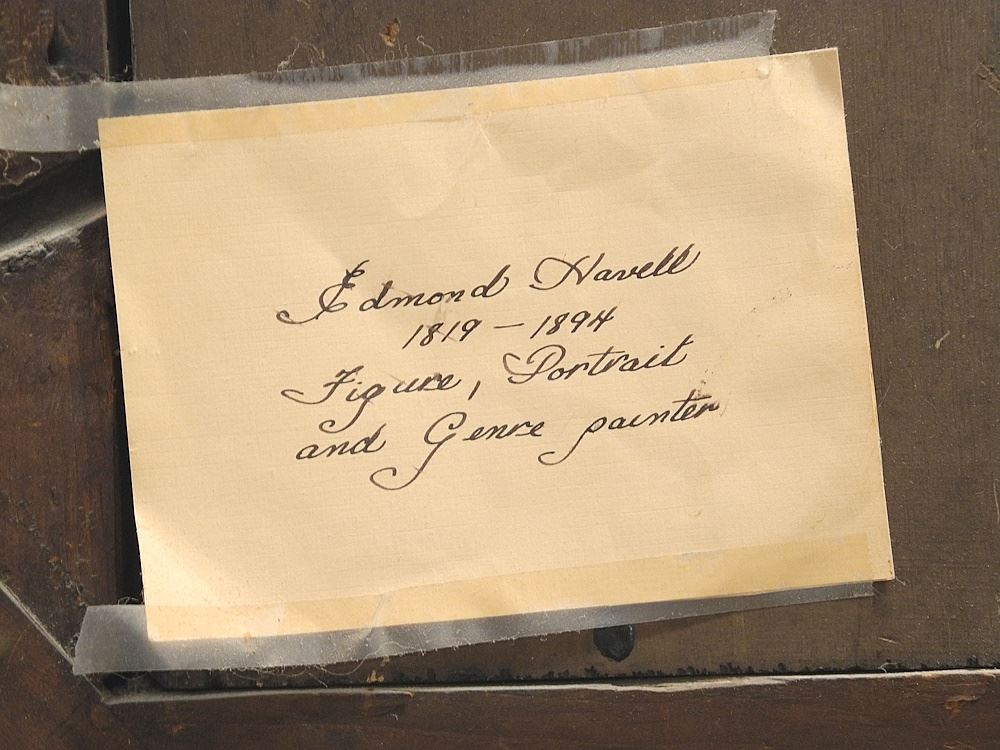 Edmond Havell
1819 – 1894
Figure, Portrait
and Genre painter